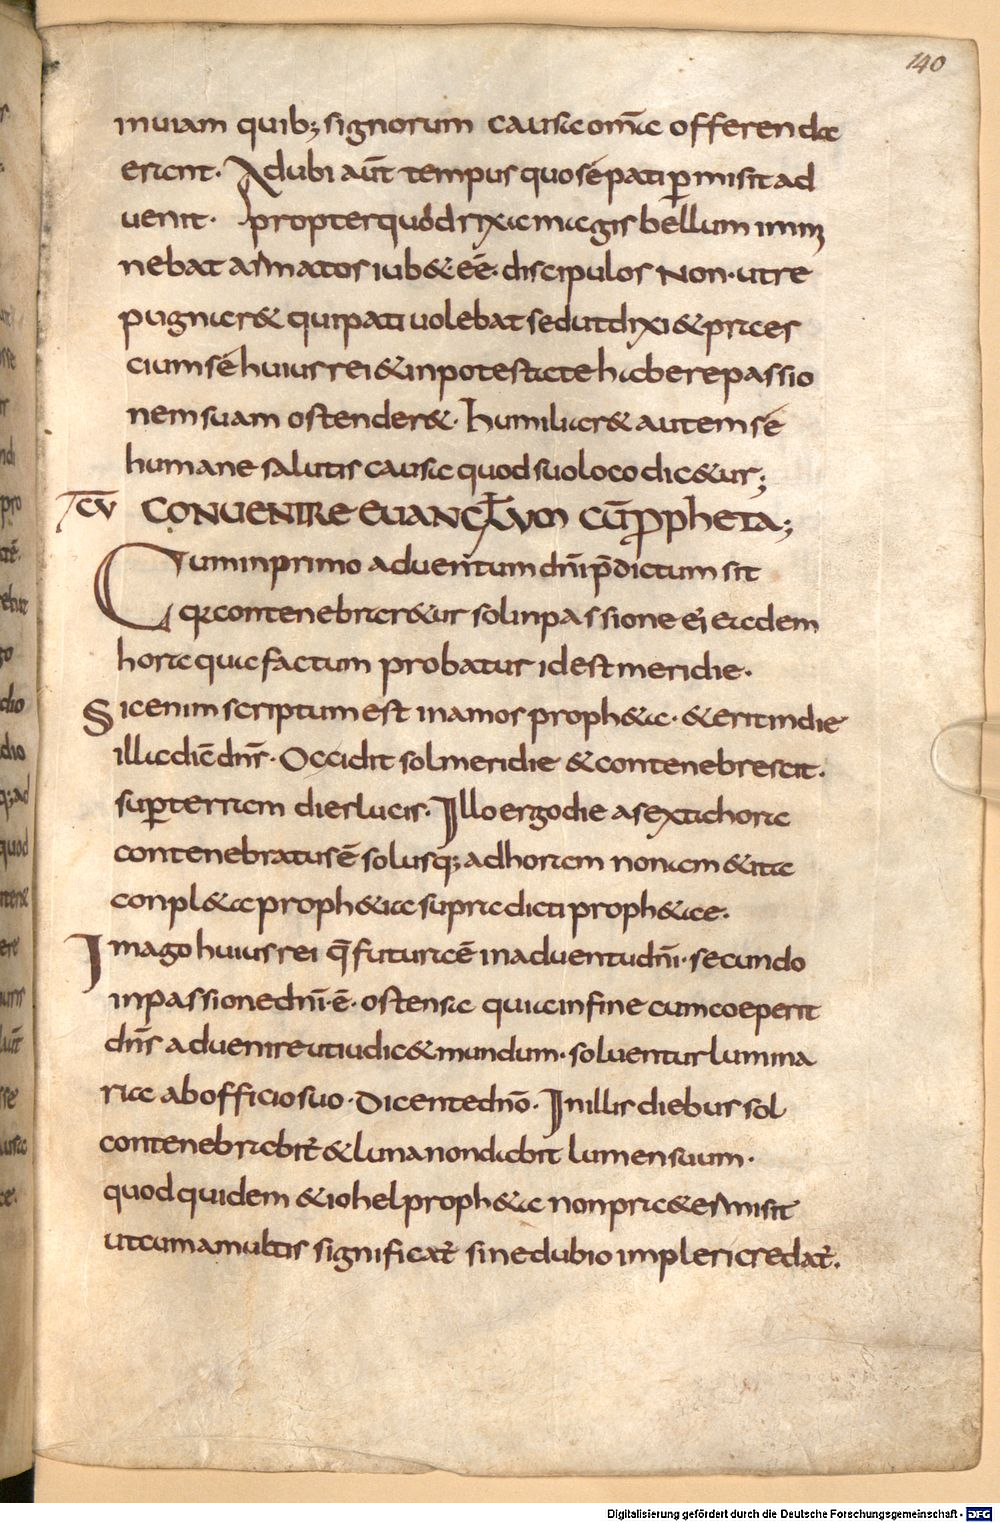 140
inuiam quib; signorum causa omĩa offerenda
erant. Ad ubi aũt tempus quo sé pati ꝑmisit ad
uenit. propter quód rixa magis bellum immi
nebat armatos iub& eẽ. discipulos Non. ut re
pugnar& qui pati uolebat sed ut dixi & praes
cium sé huius rei & in potestate habere passio
nem suam ostender&. humiliar& autem sé
humane salutis causa quod suo loco dic&ur;
CV CONVENIRE EUANGLIVM CŨ Ppheta;
Cum in primo aduentum dnĩ p̃dictum sit
q̃ contenebrar&ur sol in passione ei eadem
hora qua factum probatur id est meridie.
Sic enim scriptum est in amos proph&a. & erit in die
illa diẽ dnś. Occidit sol meridie & contenebrescit.
suꝑ terram dies lucis. Illo ergo die a sexta hora
contenebratus ẽ sol usq; ad horam nonam & ita
conpl&a proph&ia supra dicti proph&ae.
Imago huius rei q̃ futura ẽ in aduentu dnĩ. secundo
in passione dnĩ. ẽ. ostensa quia in fine cum coeperit
dnś aduenire ut iudic& mundum. soluentur lumina
ria ab officio suo. Dicente dnõ. In illis diebus sol
contenebrabit̃ & luna non dabit lumen suum.
quod quidem & iohel proph&a non pra&ermisit
ut cum a multis significat̃ sine dubio impleri credat̃.
Digitalisierung gefördert durch die Deutsche Forschungsgemeinschaft - DFG